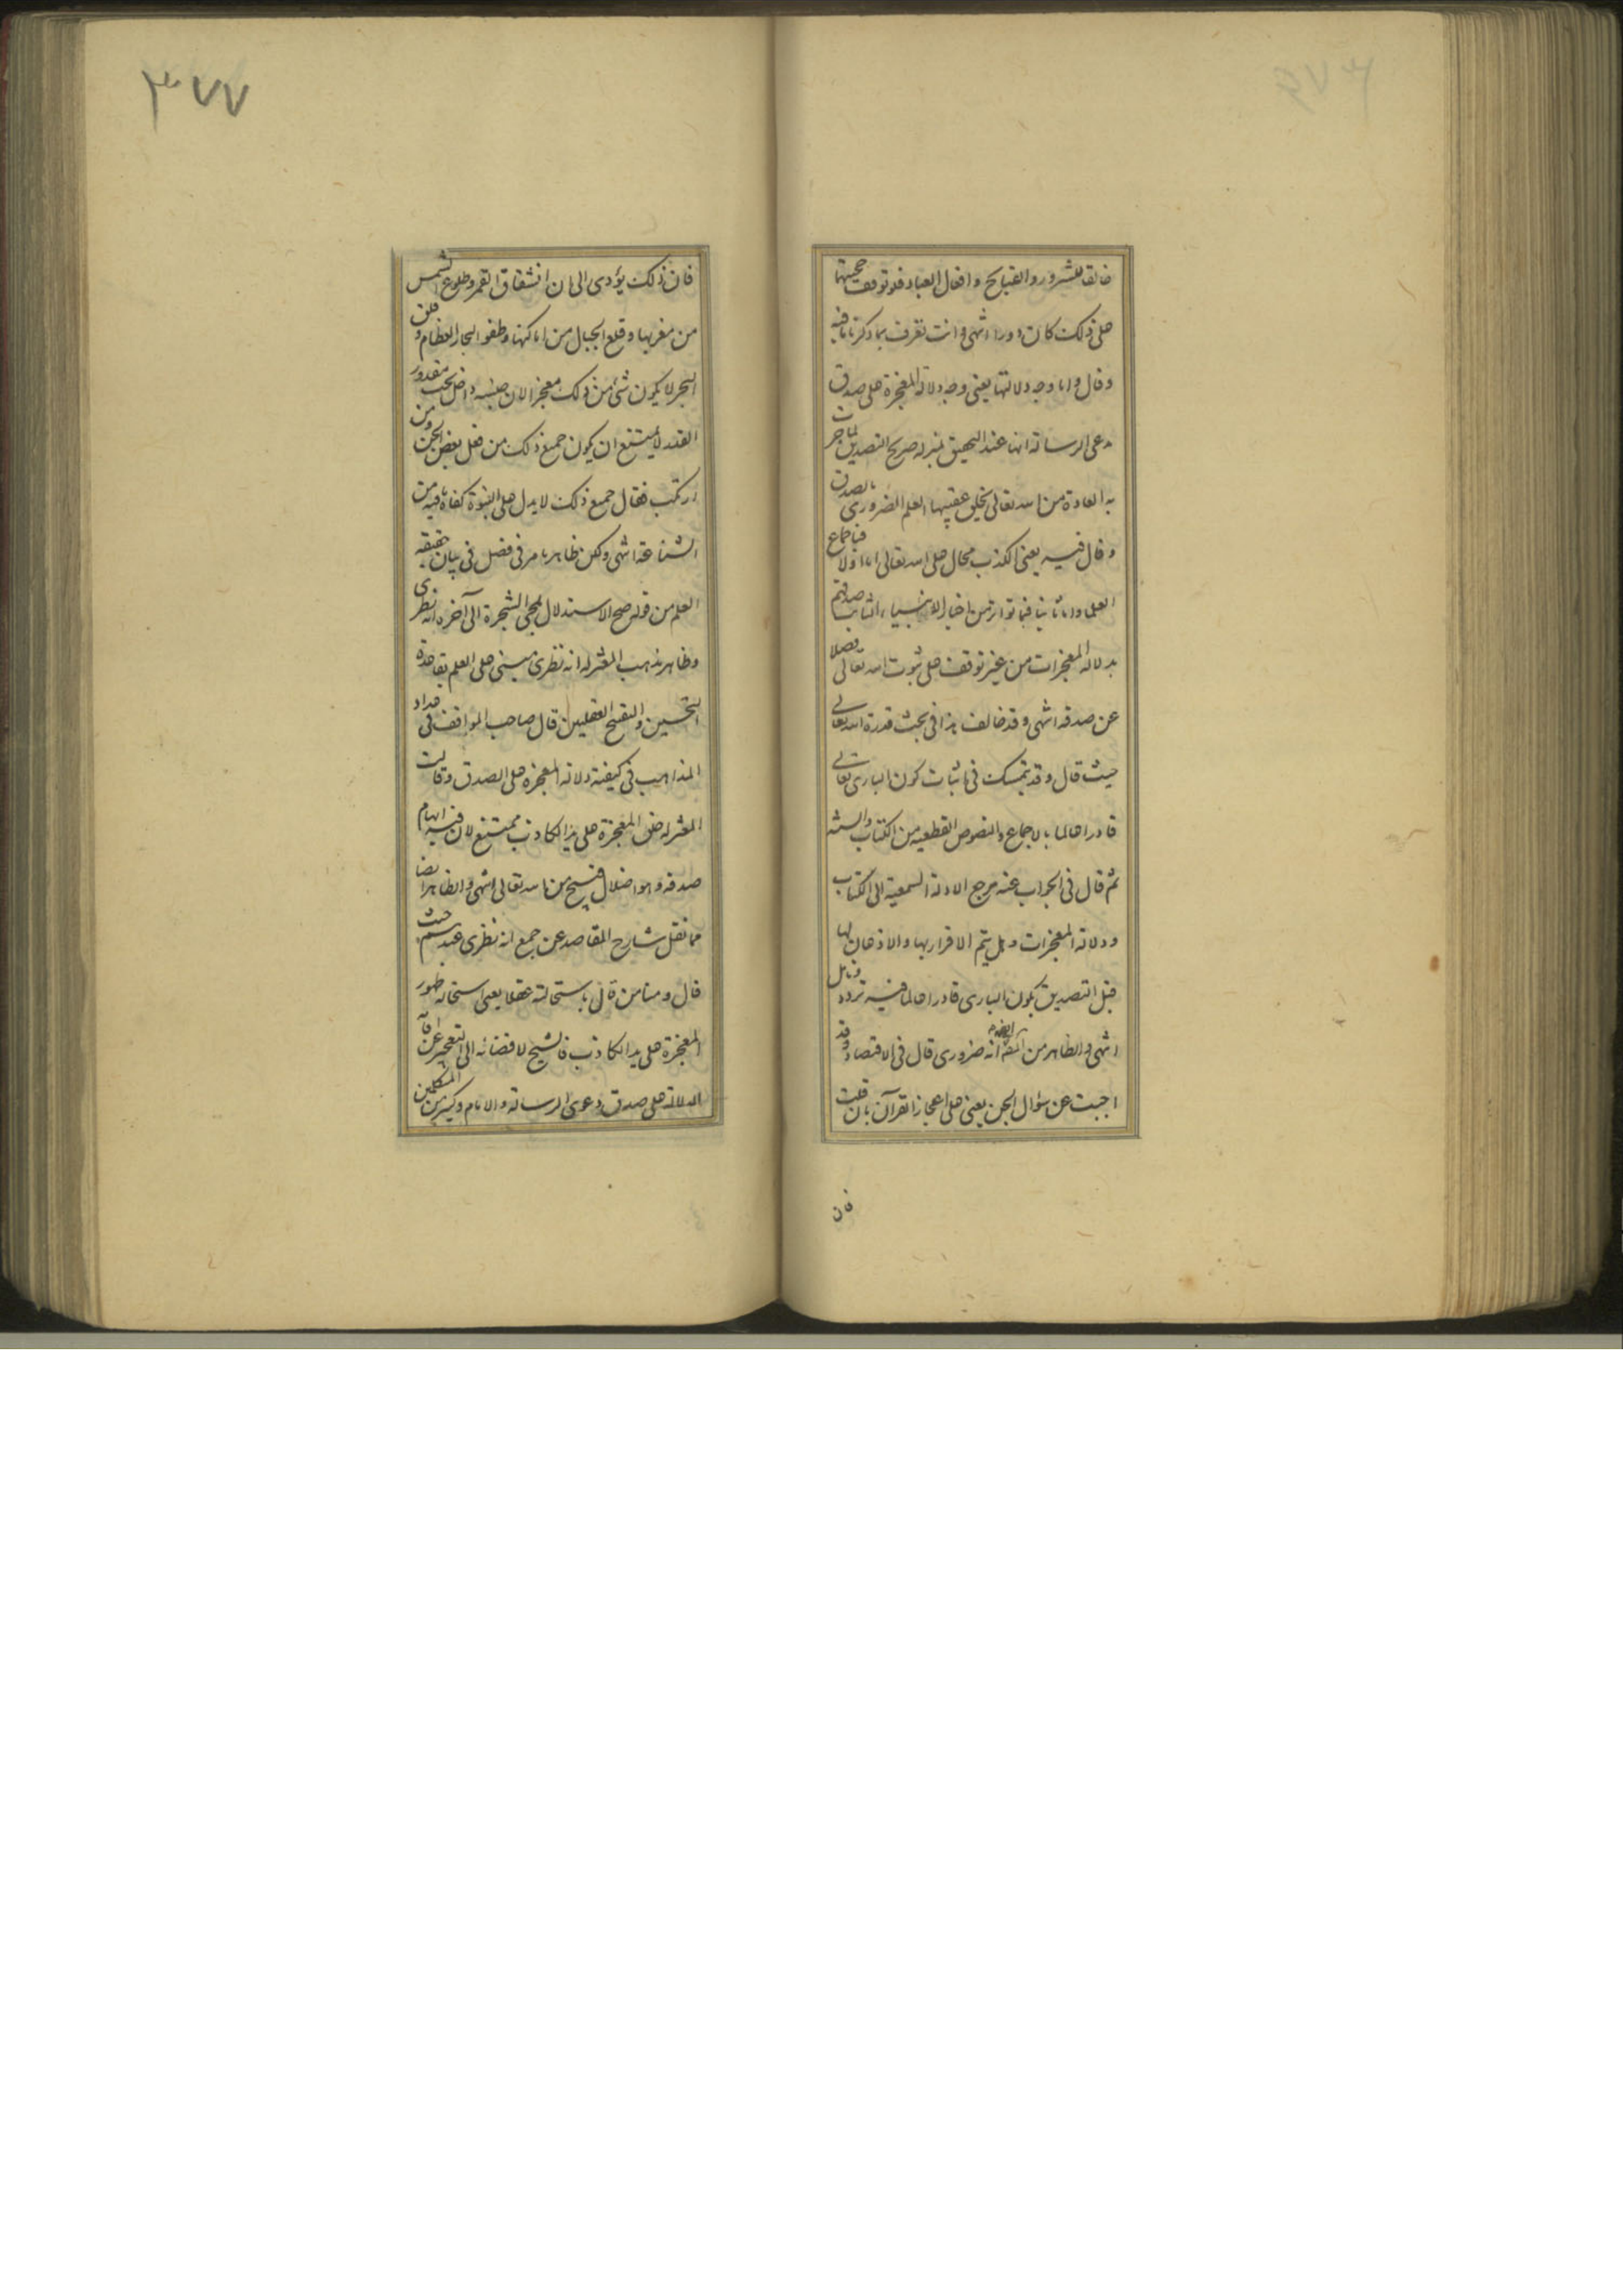 خالقا للشرور والقبايح وافعال العباد فلو توقف حجيتها
على ذلك كان دورا انتهى وانت تعرف بما ذكرنا ما فيه
وقال واما وجه دلالتها يعنى وجه دلالة المعجزة على صدق
مدعى الرسالة انها عند التحقيق بمنزلة صريح التصديق لما جرت
به العادة من ان الله تعالى يخلق عقيبها العلم الضرورى بالصدق
وقال فيه يعنى الكذب محال على الله تعالى اما اولا فباجماع
العلما واما ثانيا فبما تواتر من اخبار الانبياء الثابت صدقهم
بدلالة المعجزات من غير توقف على ثبوت الله تعالى فضلا
عن صدقه انتهى وقد خالف هذا فى بحث قدرة الله تعالى
حيث قال وقد يتمسك فى اثبات كون البارى تعالى
قادرا عالما بالاجماع والنصوص القطعيه من الكتاب والسنه
ثم قال فى الجواب عنه مرجع الادلة السمعية الى الكتاب
ودلالة المعجزات وهل يتم الاقرار بها والاذعان لها
قبل التصديق بكون البارى قادرا عالما فيه تردد وتامل
انتهى والظاهر من انه ضرورى قال فى الاقتصاد وقد
اجبت عن سؤال الجن يعنى على اعجاز القرآن بان قلت
فان
٣٧٧
فان ذلك يؤدى الى ان انشقاق القمر وطلوع الشمس
من مغربها وقلع الجبال من اماكنها وطفو البحار العظام وفلق
البحر لا يكون شئ من ذلك معجز الان جنسه داخل تحت مقدور
القدر لا يمتنع ان يكون جميع ذلك من فعل بعض الجن ومن
ارتكب فقال جميع ذلك لا يدل على النبوة كفاه ما فيه من
الشناعة انتهى ولكن ظاهر ما مر فى فصل فى بيان حقيقه
العلم من قوله صح الاستدلال بمجئ الشجرة الى آخره انه نظرى
وظاهر مذهب المعتزله انه نظرى مبنى على العلم بقاعدة
التحسين والتقبيح العقليين قال صاحب المواقف فى عداد
المذاهب فى كيفية دلالة المعجزه على الصدق وقالت
المعتزله خلق المعجزة على يد الكاذب ممتنع لان فيه ايهام
صدقه وهو اضلال قبيح من الله تعالى انتهى والظاهر ايضا
مما نقل شارح المقاصد عن جمع انه نظرى عندهم حيث
قال ومنا من قال باستحالته عقلا يعنى استحالة ظهور
المعجزة على يد الكاذب فالشيخ لافضائه الى التعجيز عن اقامة
الدلالة على صدق دعوى الرسالة والامام وكثير من المتكلمين